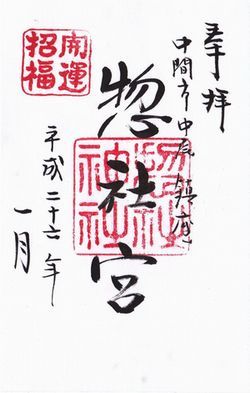 奉拝
中間市中底井野鎮座
惣社宮
惣社神社
開運招福
平成二十六年
一月